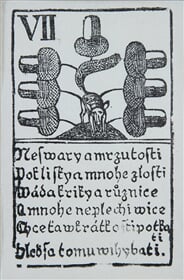 VII
Neswary a mrzutosti
Pokliſky a mnohe zlosti
Wáda křiky a různice
A mnohe neplechi wice
Chce ta wkrátkosti potka
ti
hleď ſa tomu wihybati.